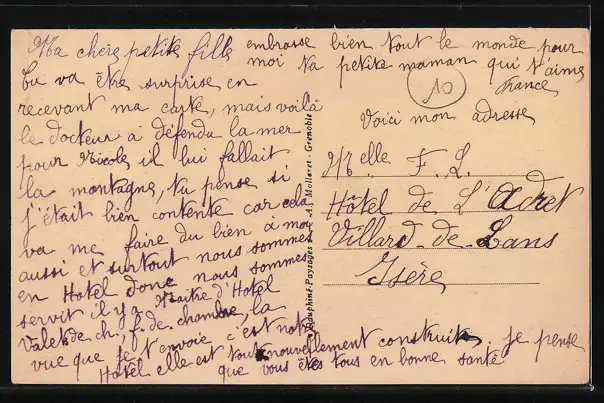 Ma chère petite fille
tu va être surprise en
recevant ma carte, mais voilà
le docteur a défendu la mer
pour Nicole il lui fallait
la montagne, tu pense si
j'était bien contente car cela
va me faire du bien à moi
aussi et surtout nous sommes
en Hotel donc nous sommes
servit il y a Maitre d'Hotel
Valet de ch, f. de chambre, la
vue que je t'envoie c'est notre
Hotel elle est tout nouvellement construite. je pense
que vous êtes tous en bonne santé
embrasse bien tout le monde pour
moi ta petite maman qui t'aime
France
10
Voici mon adresse
Melle F. L.
Hôtel de L'Adret
Villard-de-Lans
Isère
Dauphiné-Paysages - A. Mollaret - Grenoble